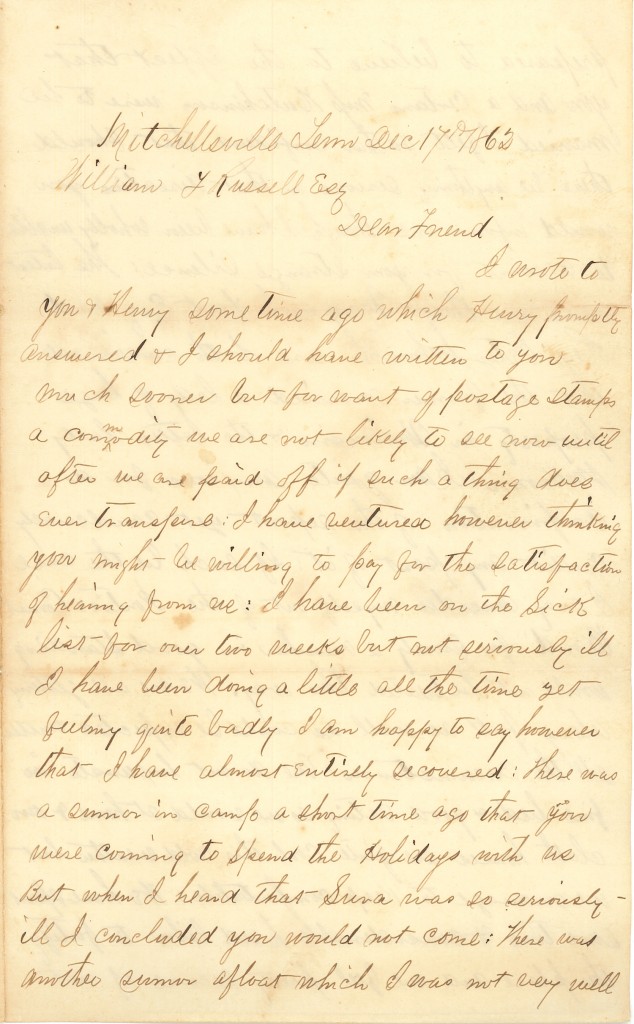 Mitchellsville Tenn Dec 17th 1862
William Y Russell Esq
Dear Friend
I wrote to
you & Henry some time ago which Henry promptly
answered & I should have written to you
much sooner but for want of postage stamps
a commodity we are not likely to see now until
after we are paid off if such a thing does
Ever transpire: I have ventured however thinking
you might be willing to pay for the satisfaction
of hearing from us: I have been on the Sick
list for over two weeks but not seriously ill
I have been doing a little all the time yet
feeling quite badly I am happy to say however
that I have almost Entirely recovered: There was
a rumor in camp a short time ago that you
were coming to Spend the Holidays with us
But when I heard that was so seriously-
ill I concluded you would not come: There was
another rumor afloat which I was not very well